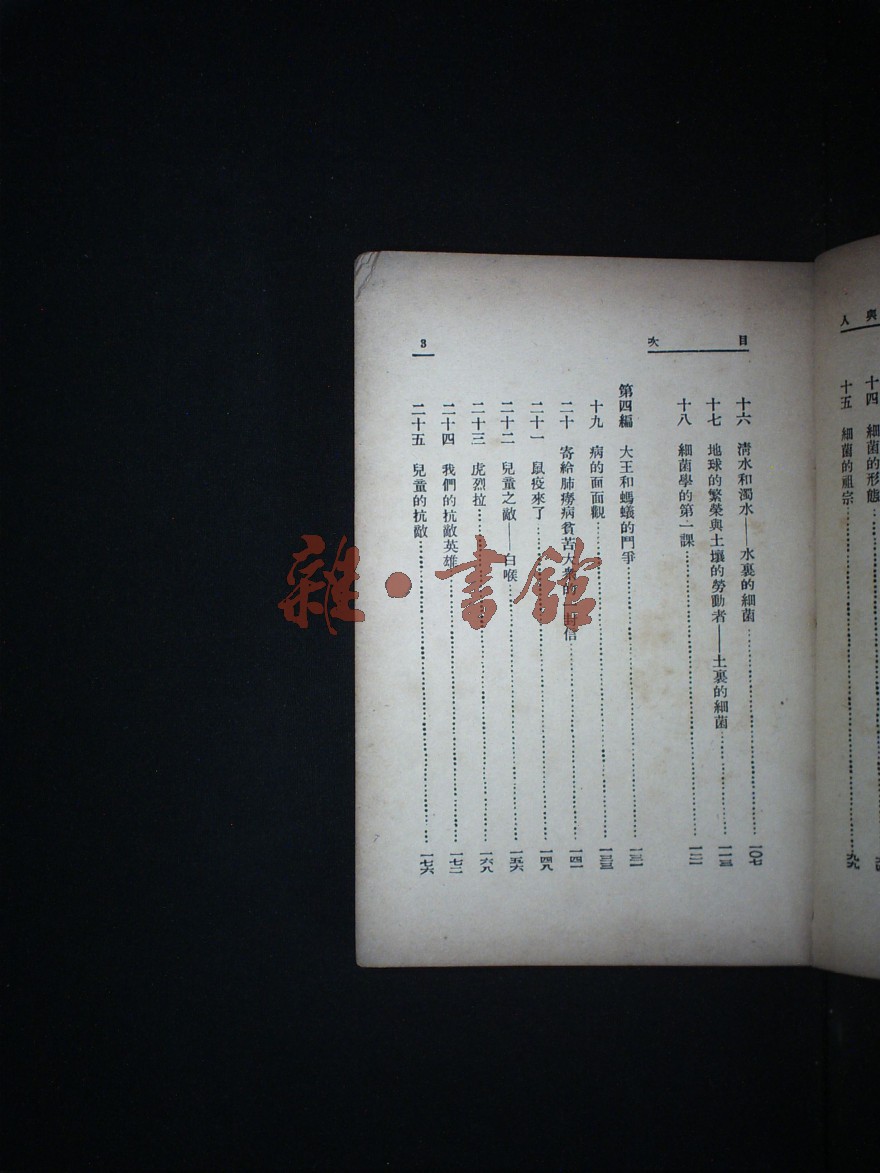 人與
十四 細菌的形態
十五 細菌的祖宗 九九
目次
十六 清水和濁水——水裏的細菌 一〇七
十七 地球的繁榮與土壤的勞動者——土裏的細菌 一一三
十八 細菌學的第一課 一二一
第四編 大王和螞蟻的鬥爭 一三一
十九 病的面面觀 一三三
二十 寄給肺癆病貧苦大衆的一封信 一四一
二十一 鼠疫來了 一四八
二十二 兒童之敵——白喉 一五六
二十三 虎烈拉 一六八
二十四 我們的抗敵英雄 一七二
二十五 兒童的抗敵 一七六
3
雜·書館